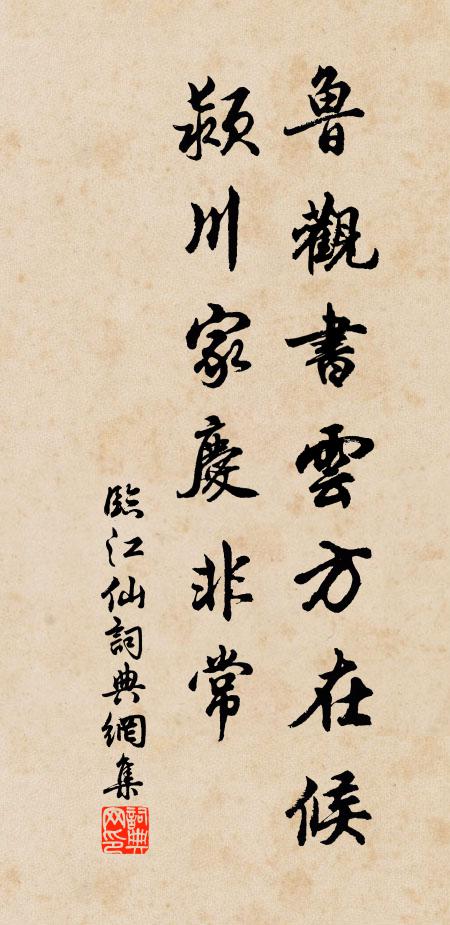 魯觀書雲方在候
潁川家慶非常
臨江仙詞典網集
詞典网印